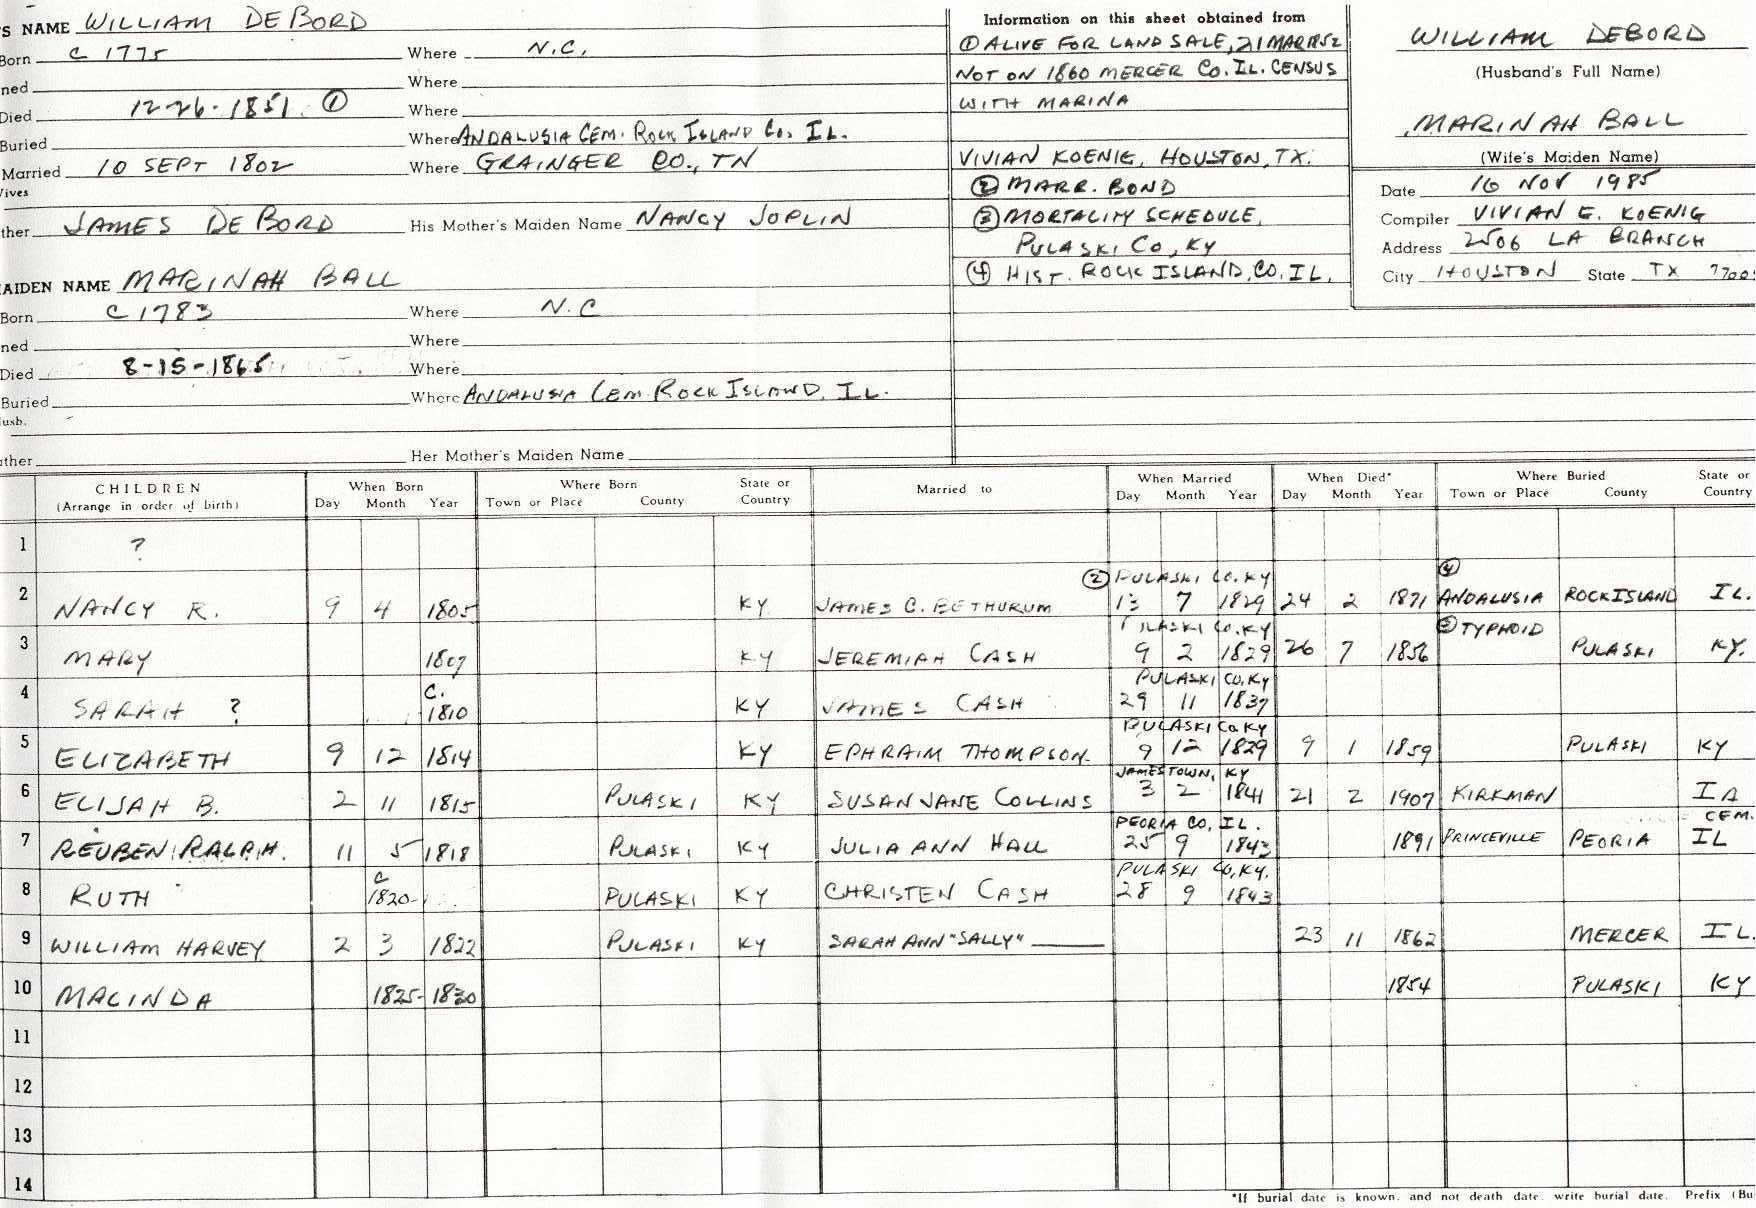 'S NAME WILLIAM DEBORD
Born C 1775 Where N.C.
ned Where
Died 12-26-1851 ① Where
Buried Where ANDALUSIA CEM. ROCK ISLAND CO. IL.
Married 10 SEPT 1802 Where GRAINGER CO., TN
Vives
ther JAMES DEBORD His Mother's Maiden Name NANCY JOPLIN
AIDEN NAME MARINAH BALL
Born C 1783 Where N.C
ned Where
Died 8-15-1865 Where
Buried Where ANDALUSIA CEM. ROCK ISLAND, IL.
usb.
ther Her Mother's Maiden Name
Information on this sheet obtained from
① ALIVE FOR LAND SALE, 21 MAR 1852
NOT ON 1860 MERCER CO. IL. CENSUS
WITH MARINA
VIVIAN KOENIG, HOUSTON, TX.
② MARR. BOND
③ MORTALITY SCHEDULE,
PULASKI CO, KY
④ HIST. ROCK ISLAND, CO, IL.
WILLIAM DEBORD
(Husband's Full Name)
MARINAH BALL
(Wife's Maiden Name)
Date 16 NOV 1985
Compiler VIVIAN E. KOENIG
Address 2506 LA BRANCH
City HOUSTON State TX 7700
CHILDREN When Born Where Born State or Married to When Married When Died* Where Buried State or
(Arrange in order of birth) Day Month Year Town or Place County Country Day Month Year Day Month Year Town or Place County Country
1 ?
② PULASKI CO. KY ④
2 NANCY R. 9 4 1805 KY JAMES C. BETHURUM 13 7 1829 24 2 1871 ANDALUSIA ROCK ISLAND IL.
PULASKI CO. KY ③ TYPHOID
3 MARY 1807 KY JEREMIAH CASH 9 2 1829 26 7 1856 PULASKI KY.
C. PULASKI CO. KY
4 SARAH ? 1810 KY JAMES CASH 29 11 1837
PULASKI CO KY
5 ELIZABETH 9 12 1814 KY EPHRAIM THOMPSON 9 12 1829 9 1 1859 PULASKI KY
JAMESTOWN, KY
6 ELIJAH B. 2 11 1815 PULASKI KY SUSAN JANE COLLINS 3 2 1841 21 2 1907 KIRKMAN IA
PEORIA CO, IL. CEM.
7 REUBEN RALPH. 11 5 1818 PULASKI KY JULIA ANN HALL 25 9 1843 1891 PRINCEVILLE PEORIA IL
C PULASKI CO, KY.
8 RUTH 1820- PULASKI KY CHRISTEN CASH 28 9 1843
9 WILLIAM HARVEY 2 3 1822 PULASKI KY SARAH ANN "SALLY" 23 11 1862 MERCER IL.
10 MALINDA 1825-1830 1854 PULASKI KY
11
12
13
14
*If burial date is known, and not death date, write burial date. Prefix (Bu